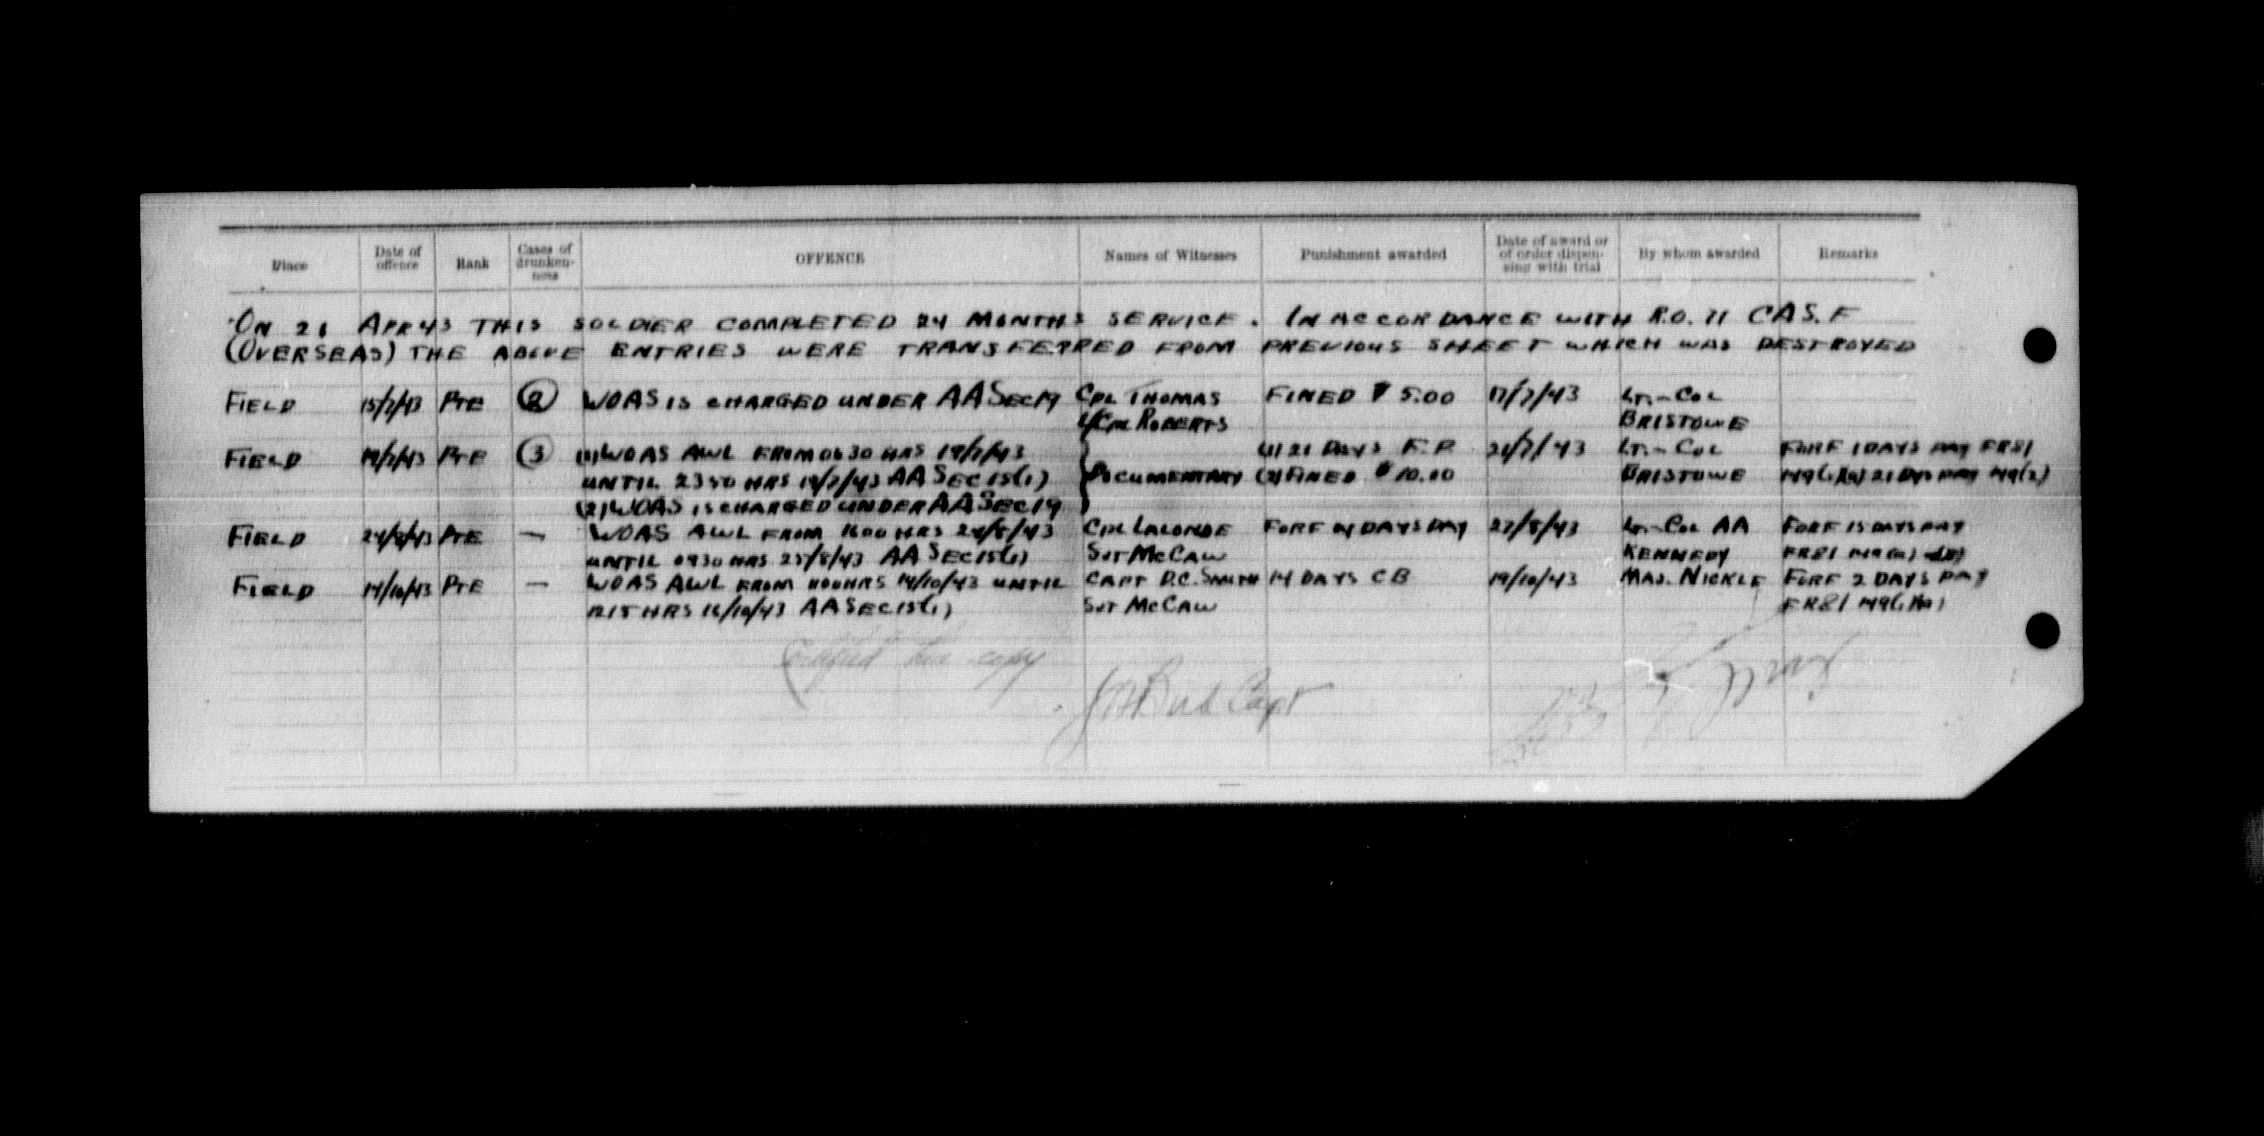 Place Date of offence Rank Cases of drunken-ness OFFENCE Names of Witnesses Punishment awarded Date of award or of order dispen-sing with trial By whom awarded Remarks
ON 21 APR 43 THIS SOLDIER COMPLETED 24 MONTHS SERVICE. IN ACCORDANCE WITH R.O. 71 CAS.F
(OVERSEAS) THE ABOVE ENTRIES WERE TRANSFERRED FROM PREVIOUS SHEET WHICH WAS DESTROYED
FIELD 15/7/43 PTE 2 WOAS IS CHARGED UNDER AA SEC 19 CPL THOMAS FINED $ 5.00 17/7/43 LT.-COL
L/CPL ROBERTS BRISTOWE
FIELD 19/7/43 PTE 3 (1) WOAS AWL FROM 0630 HRS 19/7/43 (1) 21 DAYS F.P. 21/7/43 LT.-COL FORF 1 DAYS PAY FR81
UNTIL 2350 HRS 19/7/43 AA SEC 15(1) DOCUMENTARY (2) FINED $ 10.00 BRISTOWE 149(1)(a) 21 DYS PAY 149(2)
(2) WOAS IS CHARGED UNDER AA SEC 19
FIELD 24/8/43 PTE — WOAS AWL FROM 1600 HRS 24/8/43 CPL LALONDE FORF 14 DAYS PAY 27/8/43 LT.-COL AA FORF 15 DAYS PAY
UNTIL 0930 HRS 25/8/43 AA SEC 15(1) SGT MCCAW KENNEDY FR81 149(a)
FIELD 14/10/43 PTE — WOAS AWL FROM HRS 14/10/43 UNTIL CAPT D.C. SMITH 14 DAYS CB 19/10/43 MAJ. NICKLE FORF 2 DAYS PAY
1215 HRS 16/10/43 AA SEC 15(1) SGT MCCAW FR81 149(1)(a)
Certified true copy
Capt